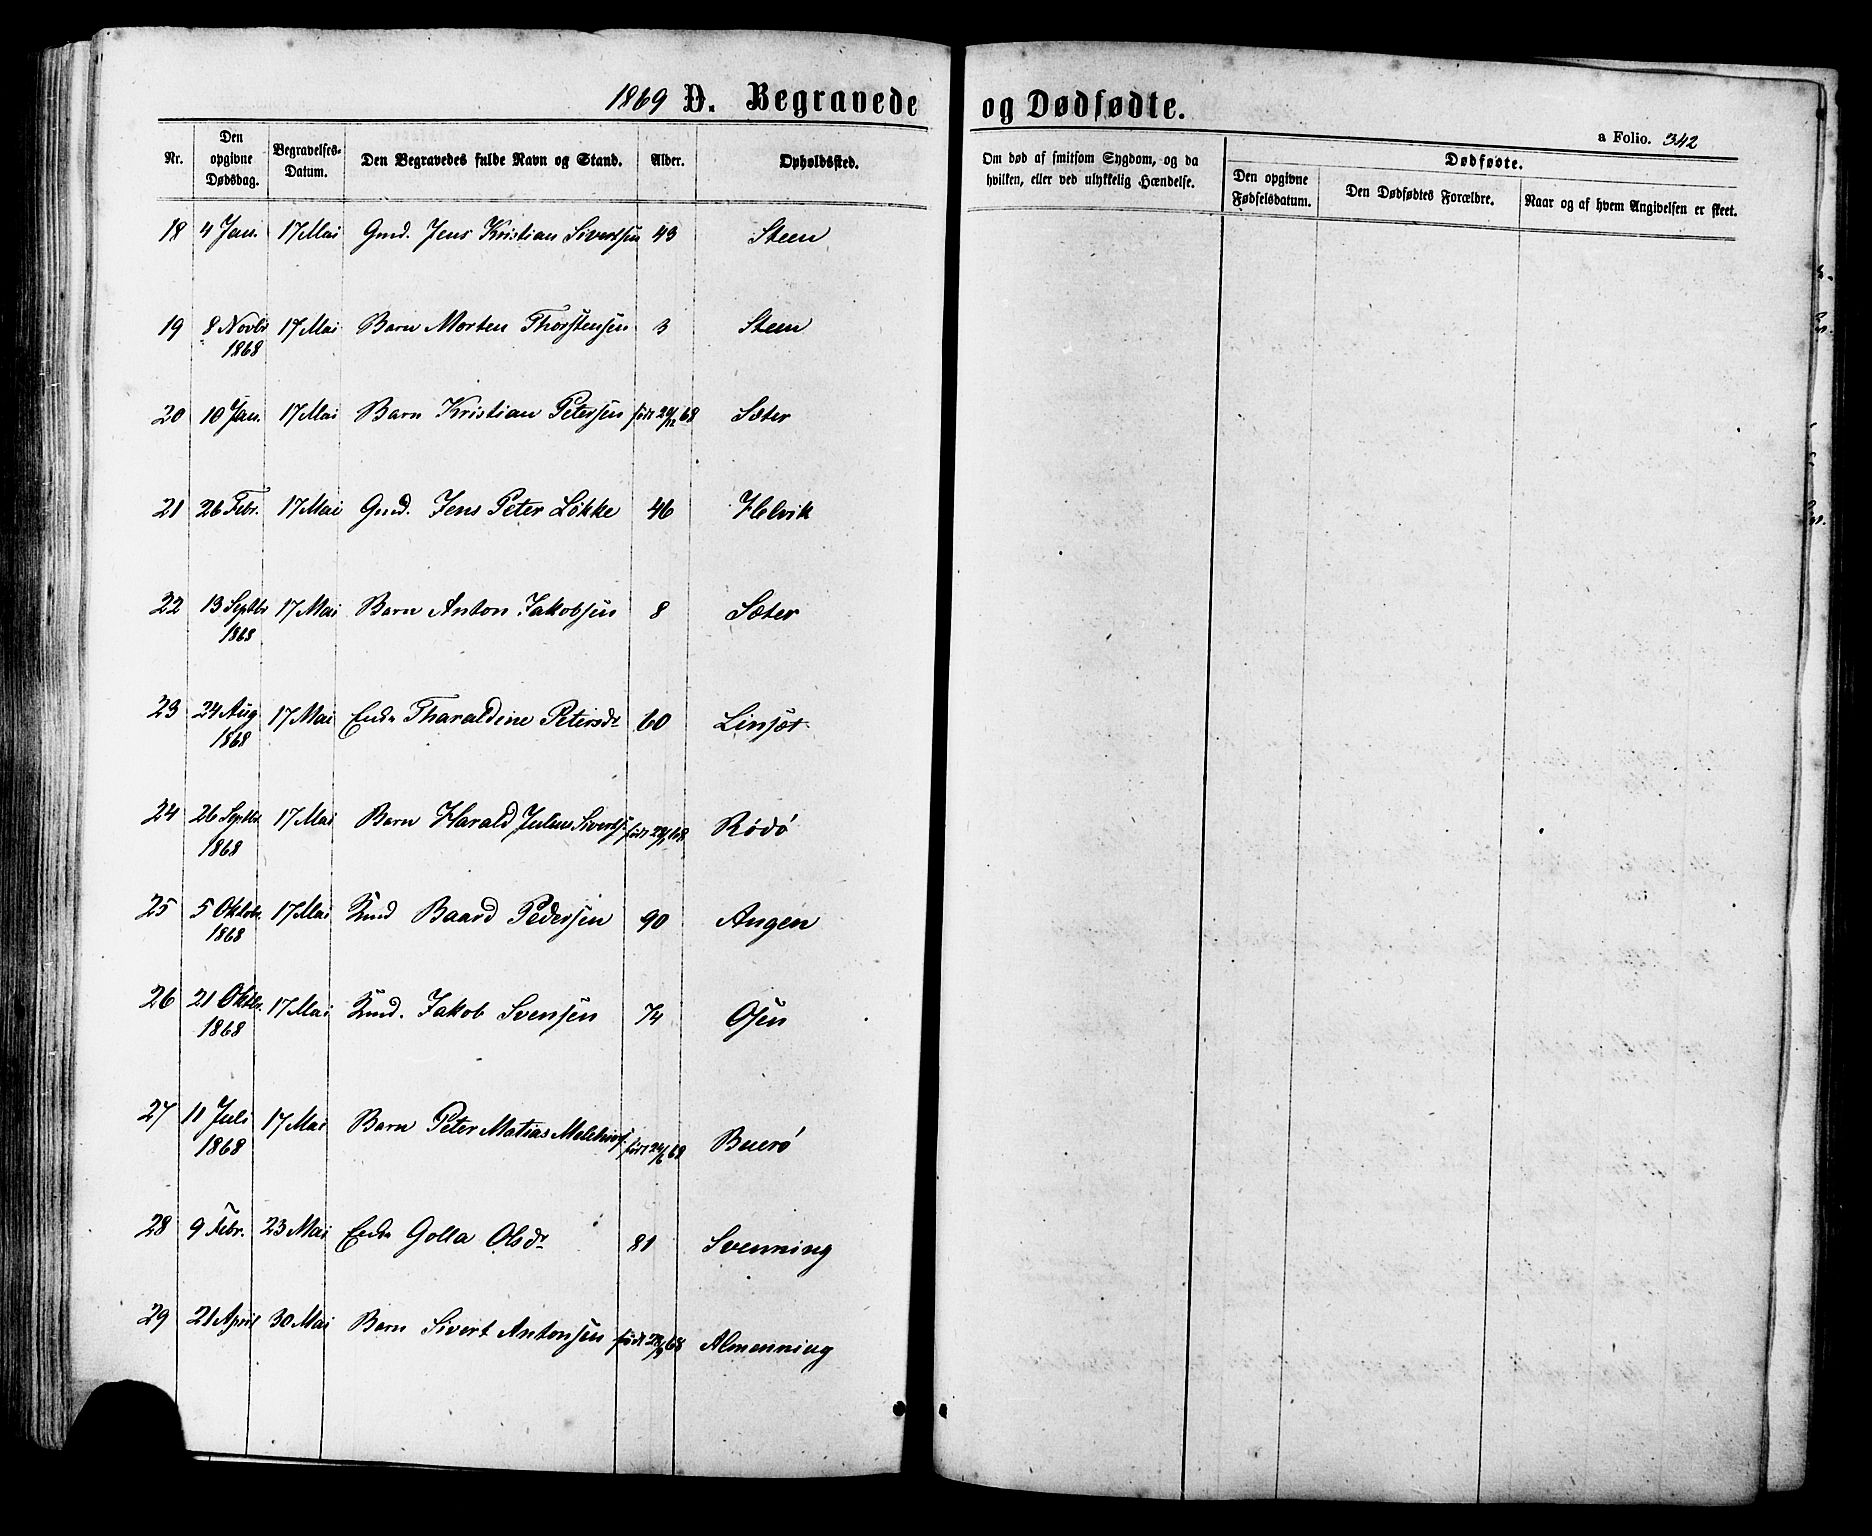 1869 D. Begravede og Dødfødte.
a Folio. 342
Nr. Den opgivne Dødsdag. Begravelses-Datum. Den Begravedes fulde Navn og Stand. Alder. Opholdssted. Om død af smitsom Sygdom, og da hvilken, eller ved ulykkelig Hændelse. Dødfødte.
Den opgivne Fødselsdatum. Den Dødfødtes Forældre. Naar og af hvem Angivelsen er skeet.
18 4 Jan. 17 Mai Gmd. Jens Kristian Sivertsen 43 Steen
19 8 Novbr 1868 17 Mai Barn Morten Thorstensen 3 Steen
20 10 Jan. 17 Mai Barn Kristian Petersen født 29/12 68 Sæter
21 26 Febr. 17 Mai Gmd. Jens Peter Løkke 46 Helvik
22 13 Septbr 1868 17 Mai Barn Anton Jakobsen 8 Sæter
23 24 Aug 1868 17 Mai Enke Tharaldine Petersdr 60 Linsæt
24 26 Septbr 1868 17 Mai Barn Harald Julius Siverts. født 68 Rødø
25 5 Oktobr. 1868 17 Mai Kmd Baard Pedersen 90 Angen
26 21 Oktbr. 1868 17 Mai Kmd. Jakob Svensen 74 Osen
27 11 Juli 1868 17 Mai Barn Peter Matias Melchiors. født 24/6 68 Buerø
28 9 Febr. 23 Mai Enke Golla Olsdr 81 Svenning
29 21 April 30 Mai Barn Sivert Antonsen født 68 Almenning